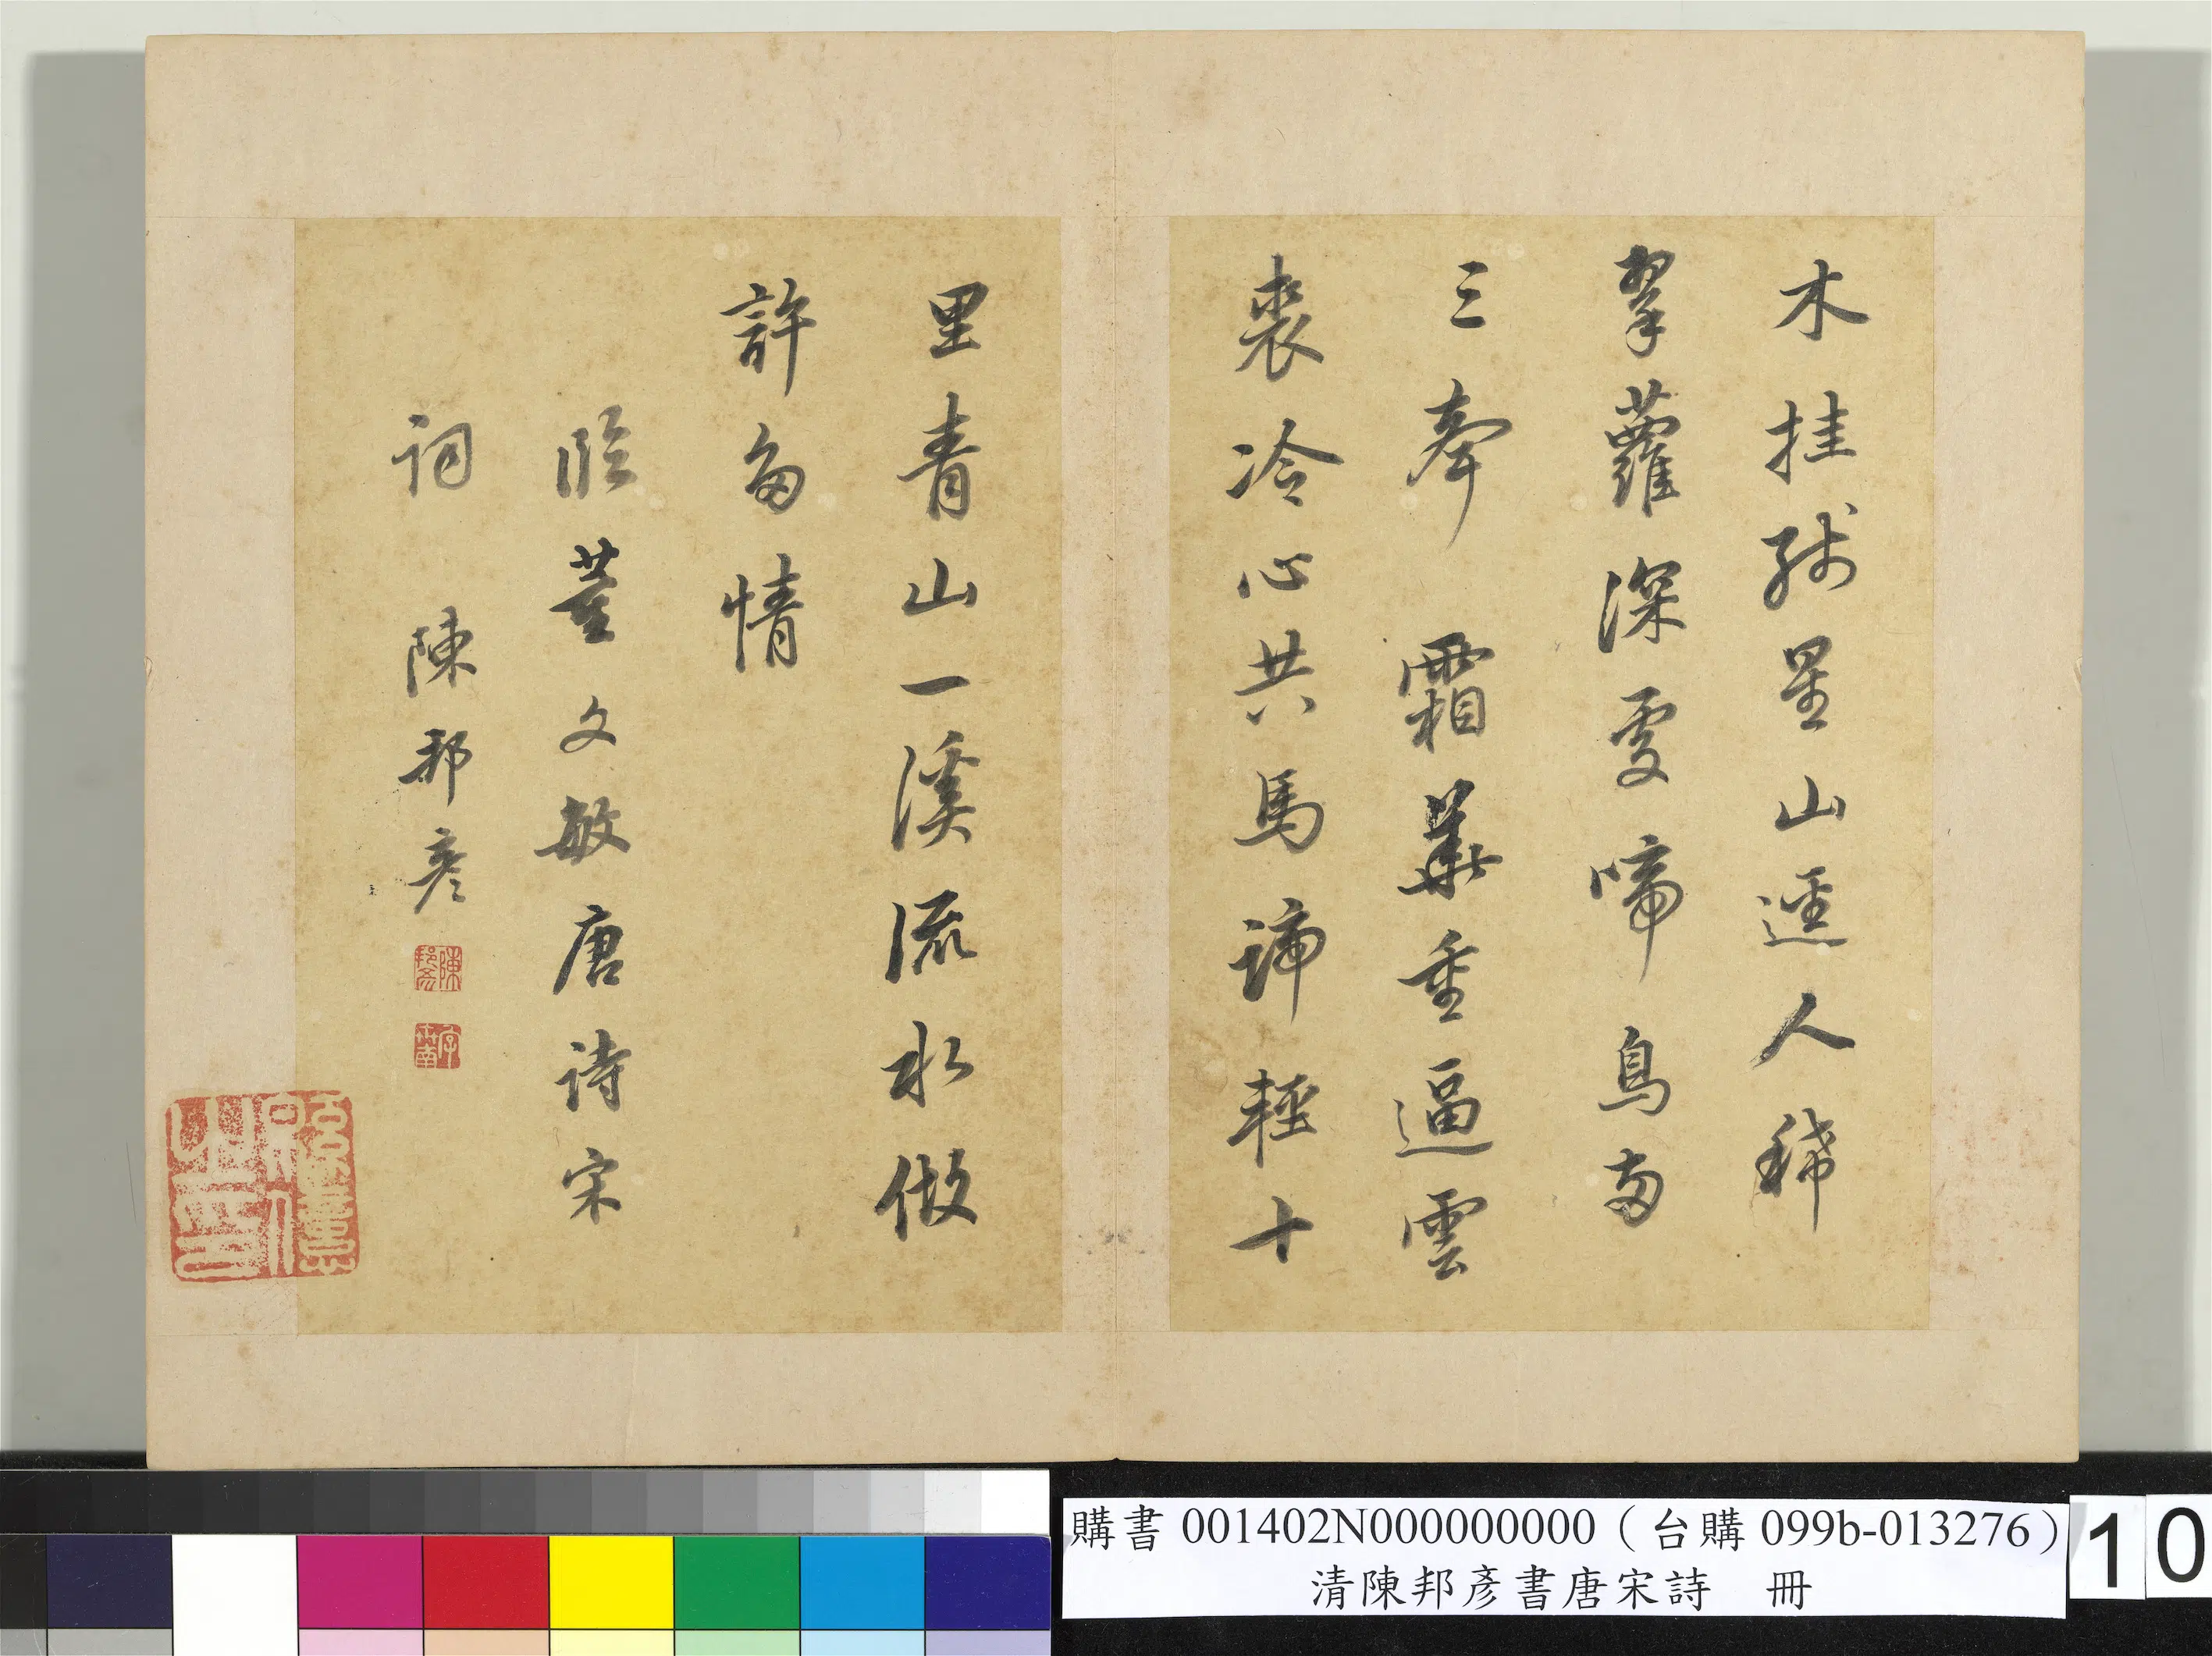 木挂残星山逕人稀
翠蘿深處啼鳥兩
三聲　霜華重逼雲
裘冷心共馬蹄輕十
里青山一溪流水做
許多情
臨董文敏唐詩宋
詞　陳邦彥
陳邦彥
字世南
購書 001402N000000000（台購 099b-013276）
清陳邦彥書唐宋詩　冊
10